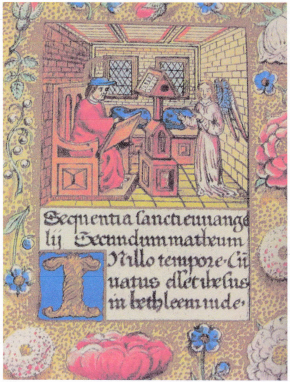 Sequentia sancti euuange
lij Secundum matheum
In illo tempore. Cū
natus esset ihesus
in bethleem iude.